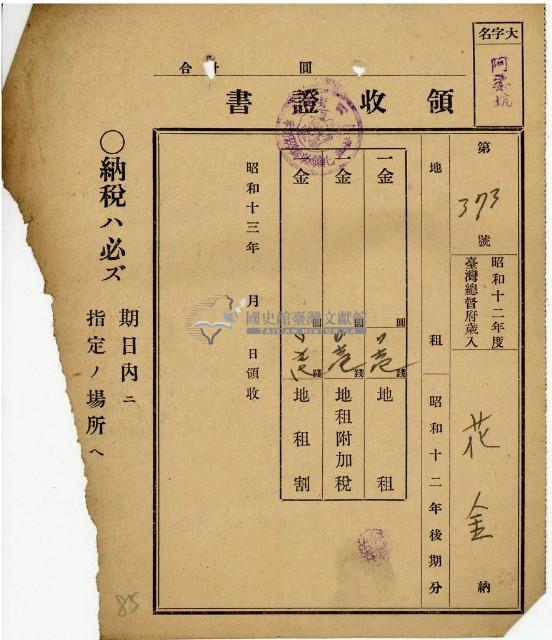 大字名
阿
坑
合計 圓
領收證書
第 373 號
昭和十二年度
臺灣總督府歲入
花金 納
地租 昭和十二年後期分
一金 圓 壱 錢 地租
一金 圓 壱 錢 地租附加稅
一金 圓 錢 地租割
昭和十三年 月 日領收
國史館臺灣文獻館
TAIWAN HISTORICA
○納税ハ必ズ
期日内ニ
指定ノ場所へ
85